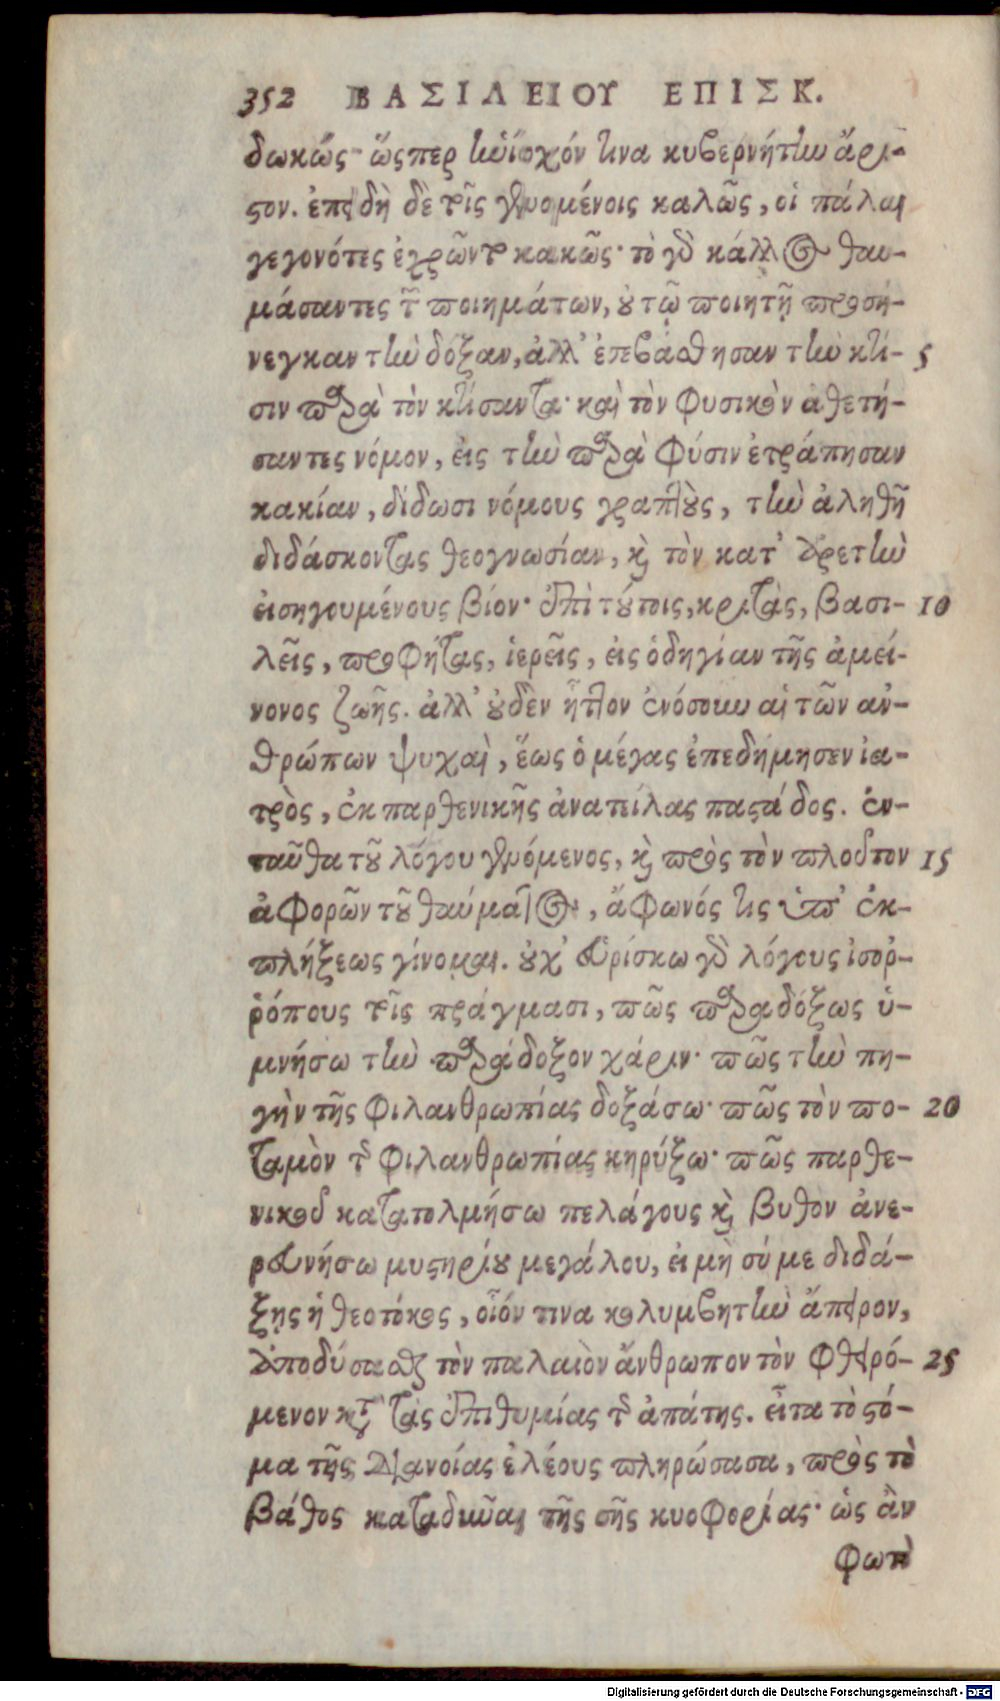 352 ΒΑΣΙΛΕΙΟΥ ΕΠΙΣΚ.
δωκώς· ὥσπερ ἡνίοχόν τινα κυβερνήτην ἄρι-
στον. ἐπειδὴ δὲ τοῖς γενομένοις καλῶς, οἱ πάλαι
γεγονότες ἐχρῶντο κακῶς· τὸ γὰρ κάλλος θαυ-
μάσαντες τῶν ποιημάτων, οὐ τῷ ποιητῇ προσή-
νεγκαν τὴν δόξαν, ἀλλ' ἐπεβάσθησαν τὴν κτί- 5
σιν παρὰ τὸν κτίσαντα· καὶ τὸν φυσικὸν ἀθετή-
σαντες νόμον, εἰς τὴν παρὰ φύσιν ἐτράπησαν
κακίαν, δίδωσι νόμους γραπτοὺς, τὴν ἀληθῆ
διδάσκοντας θεογνωσίαν, καὶ τὸν κατ' ἀρετὴν
εἰσηγουμένους βίον· ἐπὶ τούτοις, κριτὰς, βασι- 10
λεῖς, προφήτας, ἱερεῖς, εἰς ὁδηγίαν τῆς ἀμεί-
νονος ζωῆς. ἀλλ' οὐδὲν ἧττον ἐνόσουν αἱ τῶν ἀν-
θρώπων ψυχαὶ, ἕως ὁ μέγας ἐπεδήμησεν ἰα-
τρὸς, ἐκ παρθενικῆς ἀνατείλας παστάδος. ἐν-
ταῦθα τοῦ λόγου γενόμενος, καὶ πρὸς τὸν πλοῦτον 15
ἀφορῶν τοῦ θαύματος, ἄφωνός τις ὑπ' ἐκ-
πλήξεως γίνομαι. οὐχ' εὑρίσκω γὰρ λόγους ἰσορ-
ῥόπους τοῖς πράγμασι, πῶς παραδόξως ὑ-
μνήσω τὴν παράδοξον χάριν· πῶς τὴν πη-
γὴν τῆς φιλανθρωπίας δοξάσω· πῶς τὸν πο- 20
ταμὸν τῆς φιλανθρωπίας κηρύξω· πῶς παρθε-
νικοῦ κατατολμήσω πελάγους καὶ βυθὸν ἀνε-
ρευνήσω μυστηρίου μεγάλου, εἰ μὴ σύ με διδά-
ξῃς ἡ θεοτόκος, οἷόν τινα κολυμβητὴν ἄπειρον,
ἀποδύσασα τὸν παλαιὸν ἄνθρωπον τὸν φθειρό- 25
μενον κατὰ τὰς ἐπιθυμίας τῆς ἀπάτης. εἶτα τὸ στό-
μα τῆς διανοίας ἐλέους πληρώσασα, πρὸς τὸ
βάθος καταδῦναι τῆς σῆς κυοφορίας· ὡς ἂν
φωτὶ
Digitalisierung gefördert durch die Deutsche Forschungsgemeinschaft - DFG